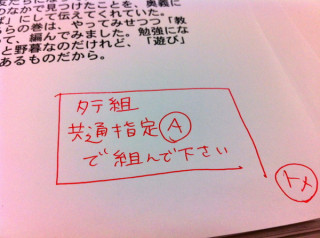 のなかで見つけたことを、奥義に
ば」にして伝えてくれていた。
らの巻は、やってみせつつ「教
って、編んでみました。勉強にな
と野暮なのだけれど、「遊び」
あるものだから。
タテ組
共通指定Ⓐ
で組んで下さい
トメ